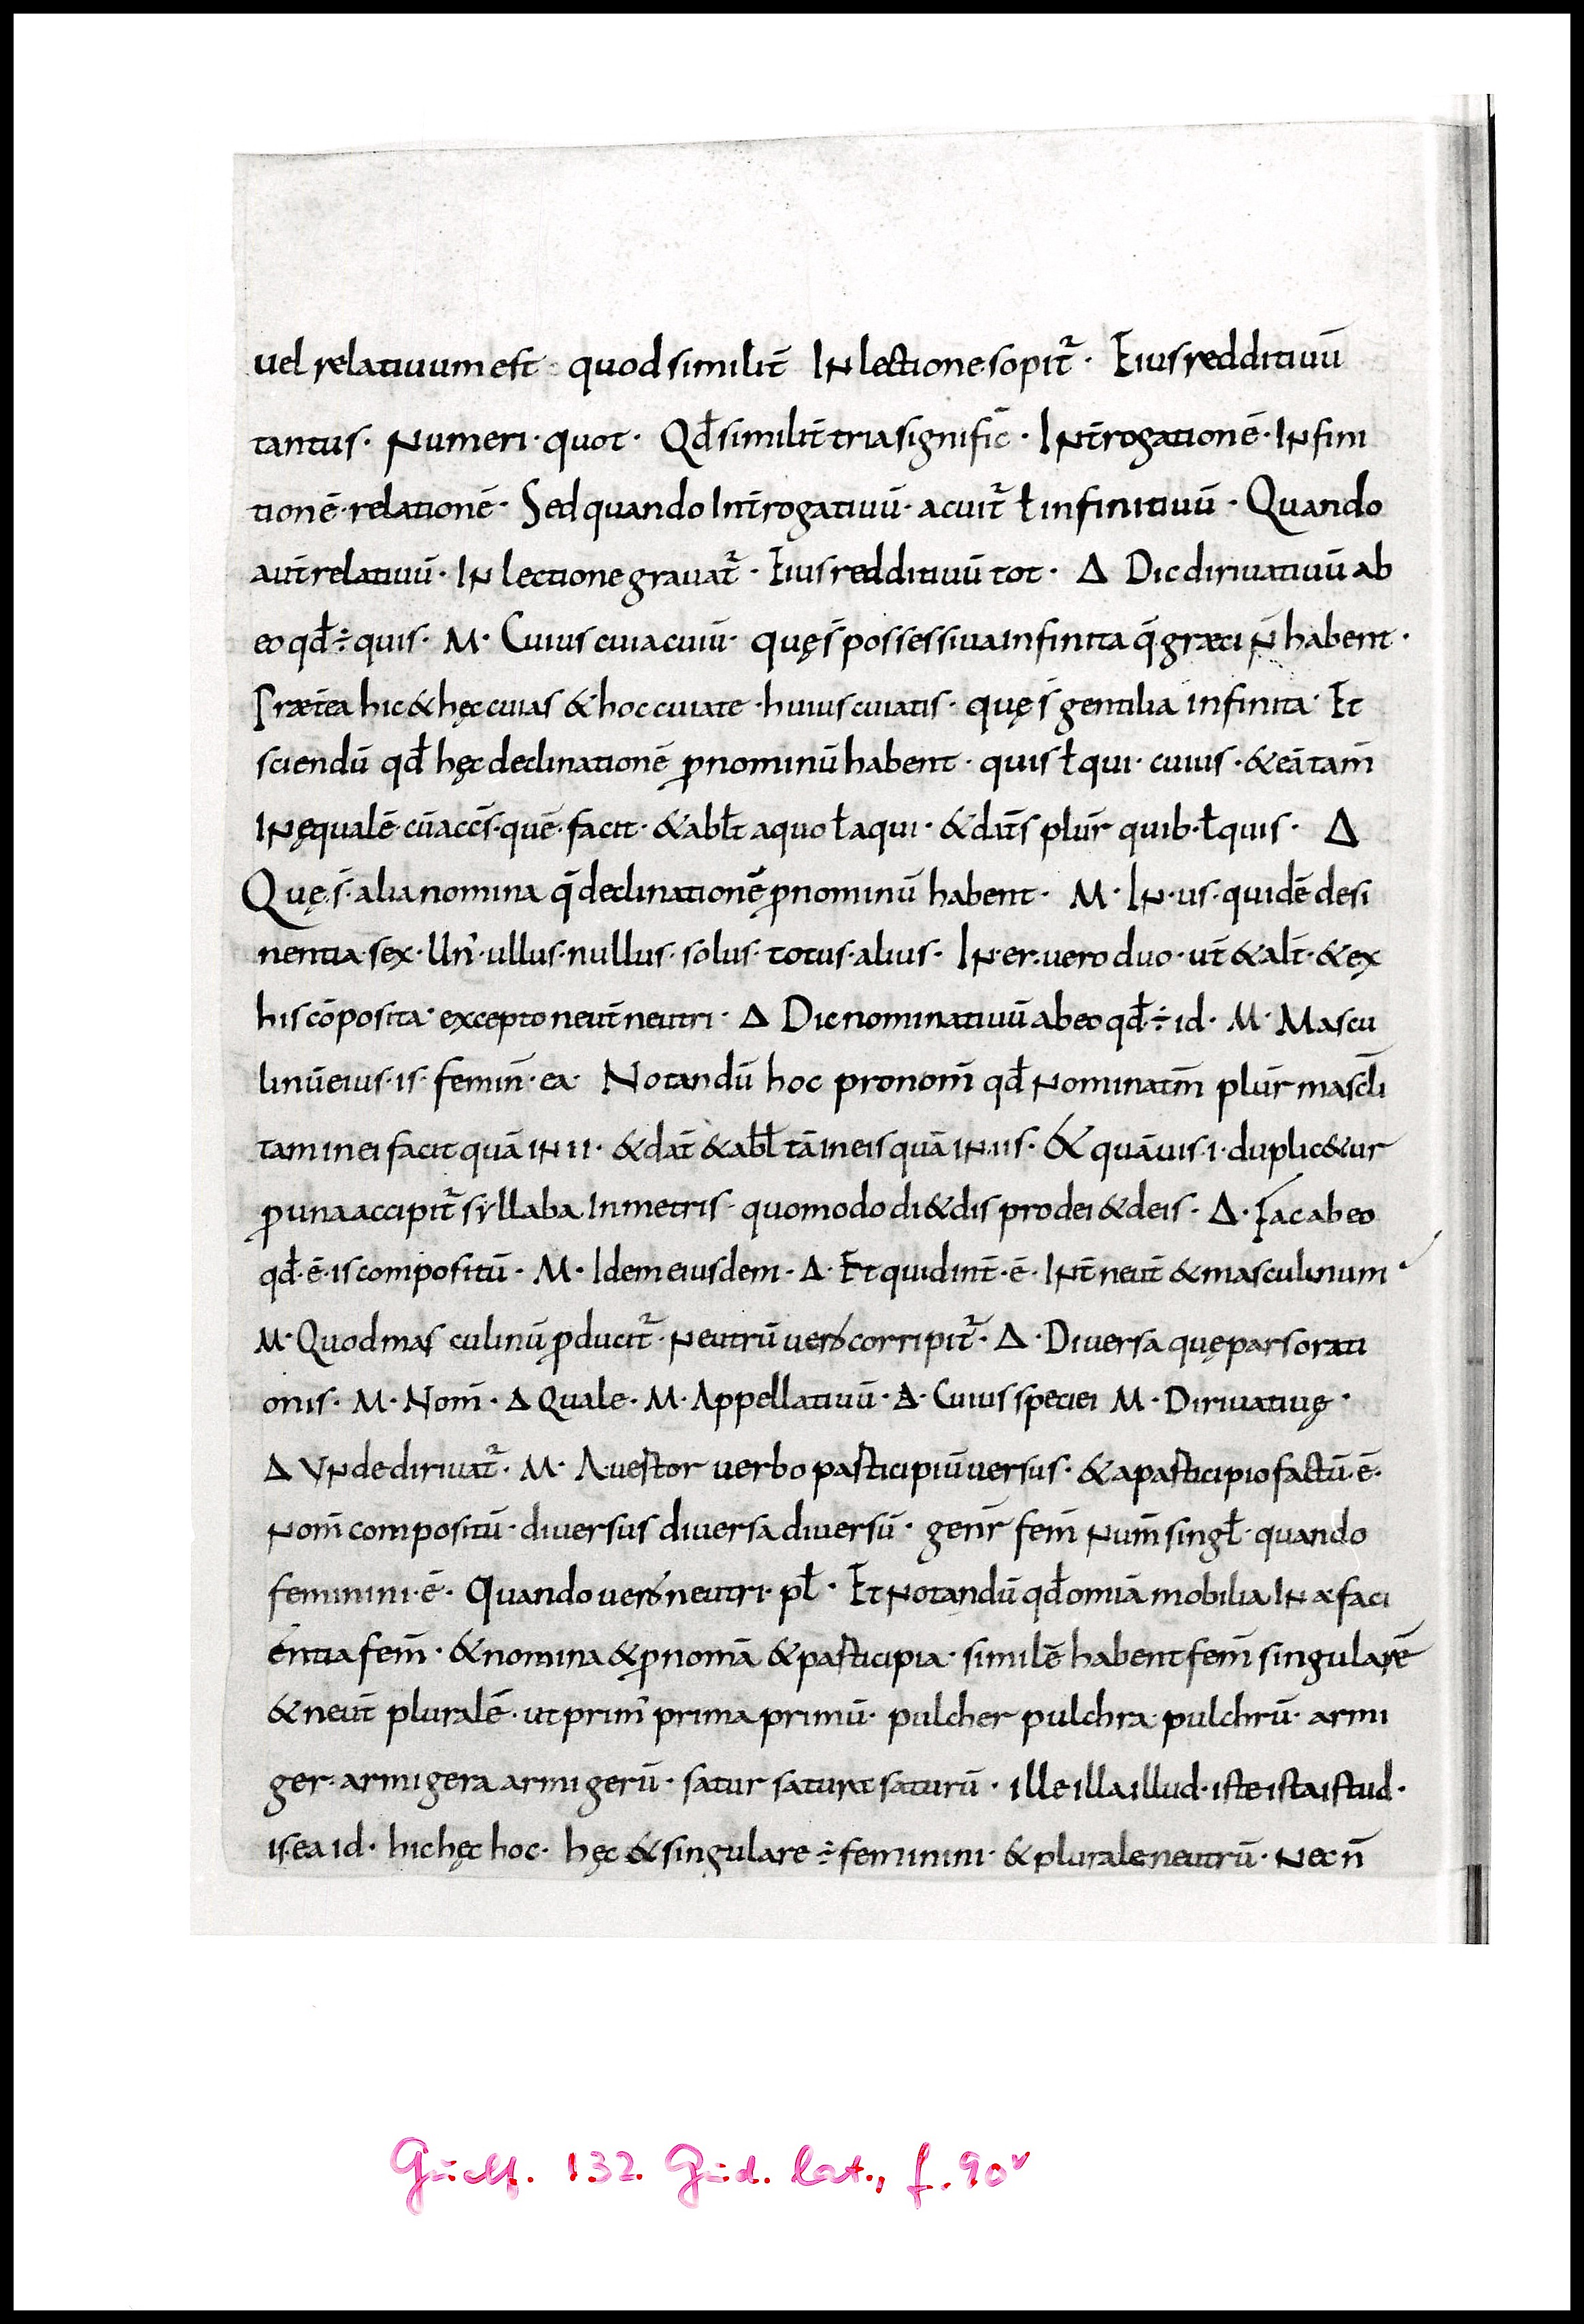 uel relatiuum est · quod similit̄ IN lectione sopit᷑ · Eius redditiuū
tantus · Numeri · quot · Qđ similit̄ tria signific̄ · INt̄rogationē · INfini
tionē · relationē · Sed quando Int̄rogatiuū · acuit᷑ ł infinitiuū · Quando
aut̄ relatiuū · IN lectione grauat᷑ · Eius redditiuū tot · Δ Dic diriuatiuū ab
eo qđ ÷ quis · M · Cuius cuia cuiū · quę s̄ possessiua infinita q̄ · græci N̄ habent ·
Præt̄ea hic & hęc cuias & hoc cuiate · huius cuiatis · quę s̄ gentilia infinita · Et
sciendū qđ hęc declinationē ꝓnominū habent · quis ł qui · cuius · & eā tam̄
INęqualē · cū accs̄ · quē · facit · & abłt a quo ł a qui · & dat̄s plur̄ quib · ł quis · Δ
Quę · s̄ · alia nomina q̄ declinationē ꝓnominū habent · M · IN · us · quidē desi
nentia · sex · Un᾽ · ullus · nullus · solus · totus · alius · IN · er · uero duo · ut̄ & alt̄ · & ex
his cōposita · excepto neut̄ neutri · Δ Dic nominatiuū ab eo qđ · ÷ id · M · Mascu
linū eius · is · femin̄ · ea · Notandū hoc pronom̄ qđ Nominatm̄ plur̄ mascłi
tam in ei facit quā IN ii · & dat̄ & abł tā in eis quā IN · iis · & quāuis · i · duplic&ur
ꝓ una accipit᷑ syllaba In metris · quomodo di & dis pro dei & deis · Δ · Fac ab eo
qđ · ē · is compositū · M · Idem eiusdem · Δ · Et quid int̄ · ē · INt̄ neut̄ & masculinum ·
M · Quod mas culinū ꝓducit᷑ · Neutrū uero corripit᷑ · Δ · Diuersa quę pars orati
onis · M · Nom̄ · Δ Quale · M · Appellatiuū · Δ · Cuius speciei M · Diriuatiuę ·
Δ VNde diriuat᷑ · M · A uestor uerbo pasticipiū uersus · & a pasticipio factū · ē ·
Nom̄ compositū · diuersus diuersa diuersū · genr̄ fem̄ Num̄ singł · quando
feminini · ē · Quando uero neutri · pł · Et Notandū qđ omīa mobilia IN a faci
entia fem̄ · & nomina & ꝓnomā & pasticipia · similē habent fem̄ singularē
& neut̄ pluralē · ut prim᾽ prima primū · pulcher pulchra pulchrū · armi
ger · armigera armigerū · satur saturat saturū · ille illa illud · iste ista istud ·
is · ea id · hic hęc hoc · hęc & singulare ÷ feminini · & plurale neutrū · Nec n̄
Guelf. 132. Gud. lat., f. 90ᵛ